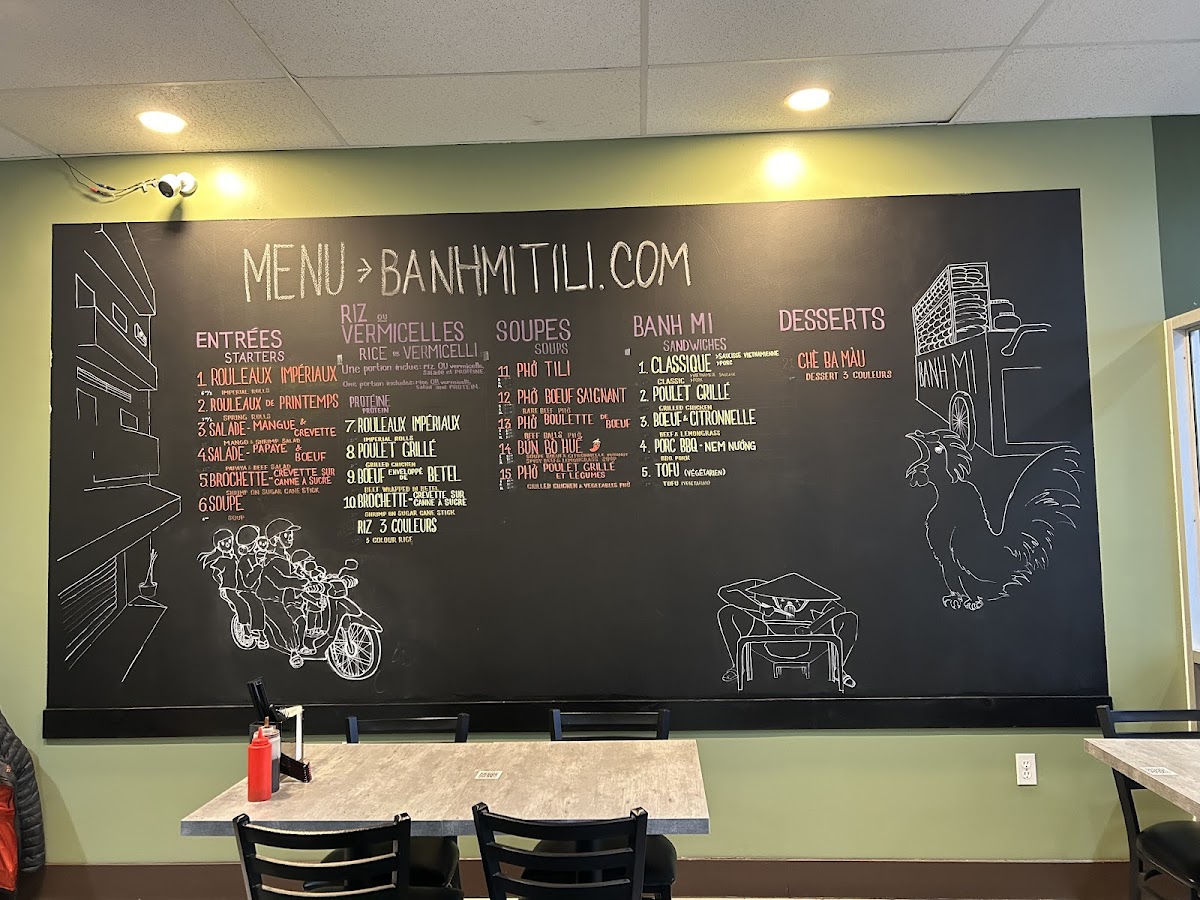 MENU → BANHMITILI.COM
ENTRÉES
STARTERS
1. ROULEAUX IMPÉRIAUX
IMPERIAL ROLLS
2. ROULEAUX DE PRINTEMPS
SPRING ROLLS
3. SALADE - MANGUE & CREVETTE
MANGO & SHRIMP SALAD
4. SALADE - PAPAYE & BOEUF
PAPAYA & BEEF SALAD
5. BROCHETTE - CREVETTE SUR CANNE À SUCRE
SHRIMP ON SUGAR CANE STICK
6. SOUPE
SOUP
RIZ OU
VERMICELLES
RICE OR VERMICELLI
Une portion inclue: riz OU vermicelle,
salade et PROTÉINE
One portion includes: rice OR vermicelli,
salad and PROTEIN
PROTÉINE
PROTEIN
7. ROULEAUX IMPÉRIAUX
IMPERIAL ROLLS
8. POULET GRILLÉ
GRILLED CHICKEN
9. BOEUF ENVELOPPÉ DE BETEL
BEEF WRAPPED IN BETEL
10. BROCHETTE - CREVETTE SUR CANNE À SUCRE
SHRIMP ON SUGAR CANE STICK
RIZ 3 COULEURS
3 COLOUR RICE
SOUPES
SOUPS
11 PHỞ TILI
12 PHỞ BOEUF SAIGNANT
RARE BEEF PHỞ
13 PHỞ BOULETTE DE BOEUF
BEEF BALLS PHỞ
14 BÚN BÒ HUẾ
15 PHỞ POULET GRILLÉ ET LÉGUMES
GRILLED CHICKEN & VEGETABLES PHỞ
BANH MI
SANDWICHES
1. CLASSIQUE > SAUCISSE VIETNAMIENNE
> PORC
CLASSIC
2. POULET GRILLÉ
GRILLED CHICKEN
3. BOEUF & CITRONNELLE
BEEF & LEMONGRASS
4. PORC BBQ - NEM NƯỚNG
BBQ PORK
5. TOFU (VÉGÉTARIEN)
TOFU (VEGETARIAN)
DESSERTS
CHÈ BA MÀU
DESSERT 3 COULEURS
BANH MI